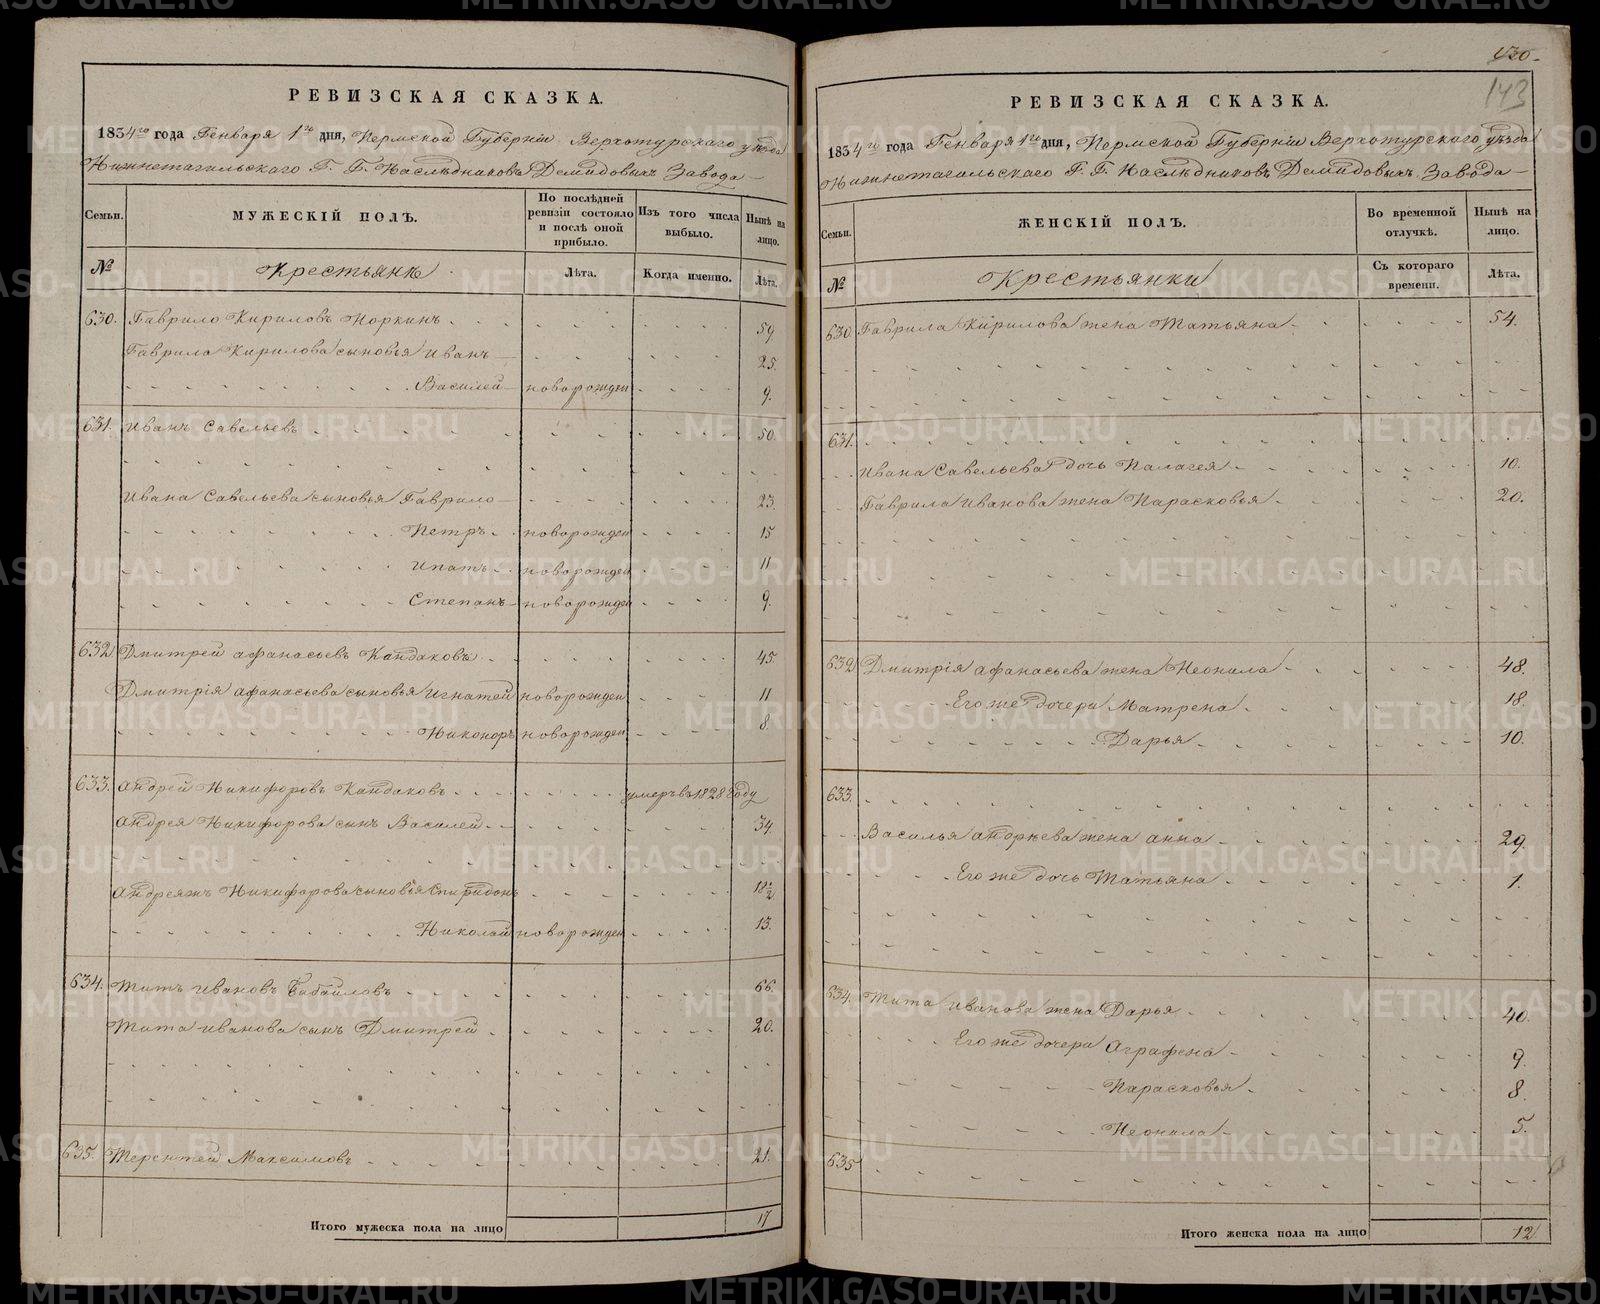 РЕВИЗСКАЯ СКАЗКА.
1834го года Генваря 1го дня, Пермской Губерніи Верхотурскаго уѣзда
Нижнетагильскаго Г. Г. Наслѣдниковъ Демидовыхъ Завода
Семьи.
МУЖЕСКІЙ ПОЛЪ.
По послѣдней ревизіи состояло и послѣ оной прибыло.
Изъ того числа выбыло.
Нынѣ на лицо.
№
Крестьянъ
Лѣта.
Когда именно.
Лѣта.
630. Гаврило Кириловъ Норкинъ 59.
Гаврила Кирилова сыновья Иванъ 25.
Василей новорожден 9.
631. Иванъ Савельевъ 50.
Ивана Савельева сыновья Гаврило 23.
Петръ новорожден 15
Ипатъ новорожден 11
Степанъ новорожден 9.
632. Дмитрей Афанасьевъ Кандаковъ 45.
Дмитрія Афанасьева сыновья Игнатей новорожден 11
Никоноръ новорожден 8.
633. Андрей Никифоровъ Кандаковъ умеръ въ 1828 году
Андрея Никифорова сынъ Василей 34.
Андреяжъ Никифорова сыновья Спиридонъ 18 1/2
Николай новорожден 13.
634. Титъ Ивановъ 66.
Тита Иванова сынъ Дмитрей 20.
635. Терентей Максимовъ 21.
Итого мужеска пола на лицо 17
130.
143
РЕВИЗСКАЯ СКАЗКА.
1834го года Генваря 1го дня, Пермской Губерніи Верхотурскаго уѣзда
Нижнетагильскаго Г. Г. Наслѣдниковъ Демидовыхъ Завода
Семьи.
ЖЕНСКІЙ ПОЛЪ.
Во временной отлучкѣ.
Нынѣ на лицо.
№
Крестьянки
Съ котораго времени.
Лѣта.
630. Гаврила Кирилова жена Татьяна 54.
631.
Ивана Савельева дочь Палагея 10.
Гаврила Иванова жена Парасковья 20.
632. Дмитрія Афанасьева жена Неонила 48.
Его же дочери Матрена 18.
Дарья 10.
633.
Василья Андрѣева жена Анна 29.
Его же дочь Татьяна 1.
634. Тита Иванова жена Дарья 40.
Его же дочери Аграфена 9.
Парасковья 8.
Неонила 5.
635
Итого женска пола на лицо 12
METRIKI.GASO-URAL.RU